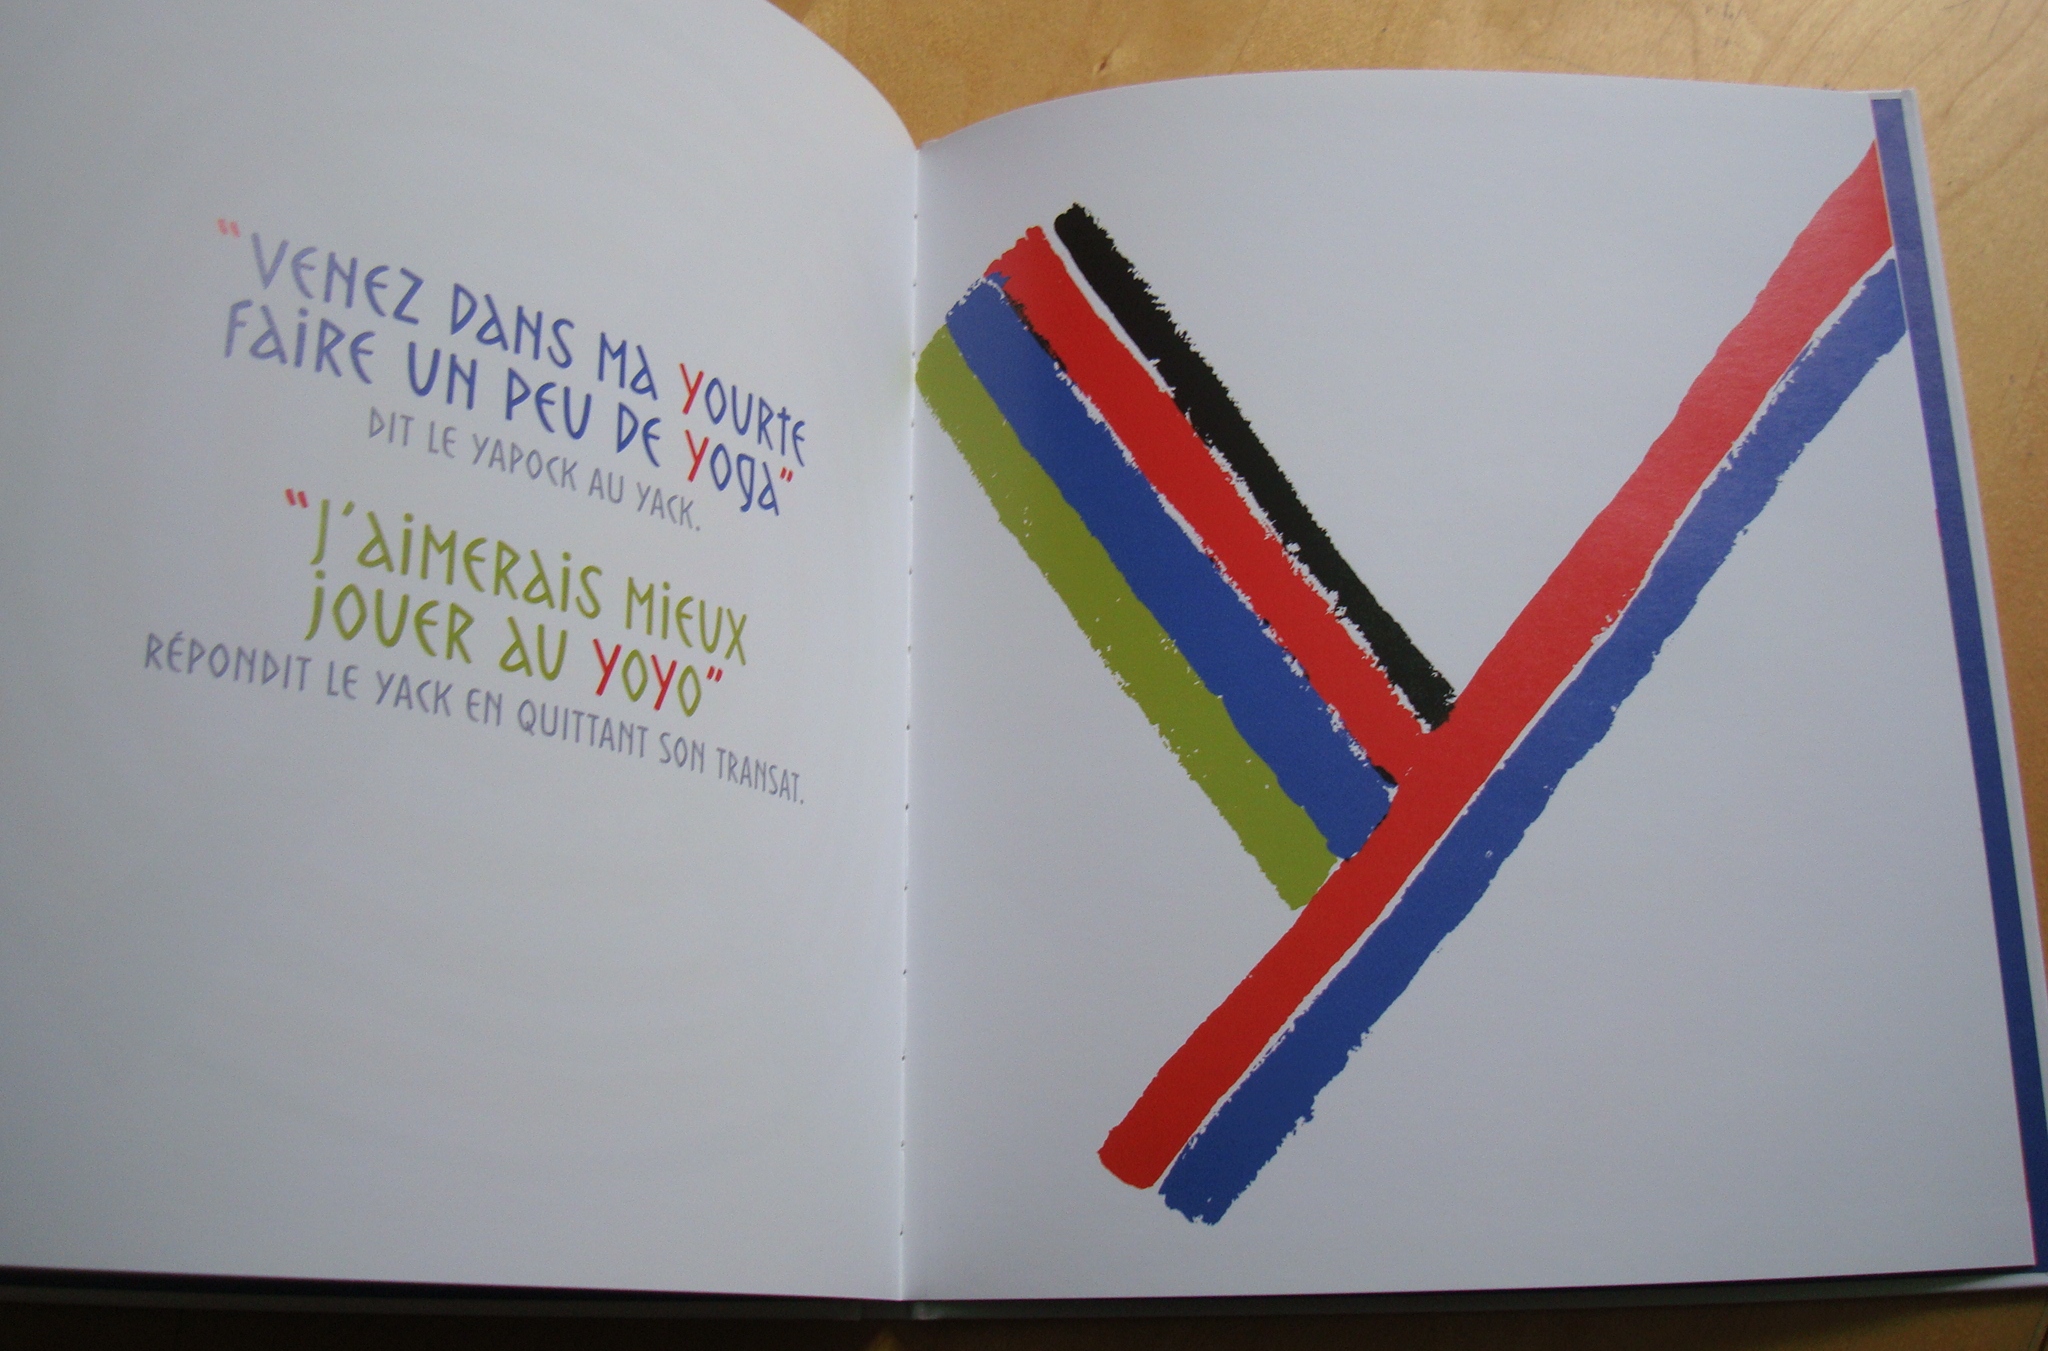 "VENEZ DANS MA YOURTE
FAIRE UN PEU DE YOGA"
DIT LE YAPOCK AU YACK.
"J'AIMERAIS MIEUX
JOUER AU YOYO"
RÉPONDIT LE YACK EN QUITTANT SON TRANSAT.
Y